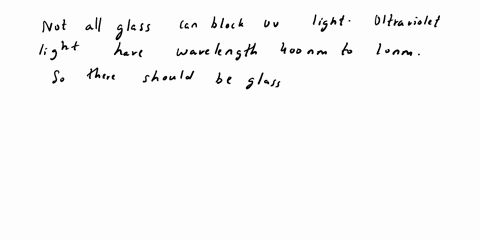 Not all glass can block uv light. Ultraviolet
light have wavelength 400nm to 10nm.
So there should be glass